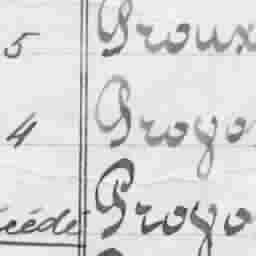 5 Proux
4 Proyo
écédé Proyo